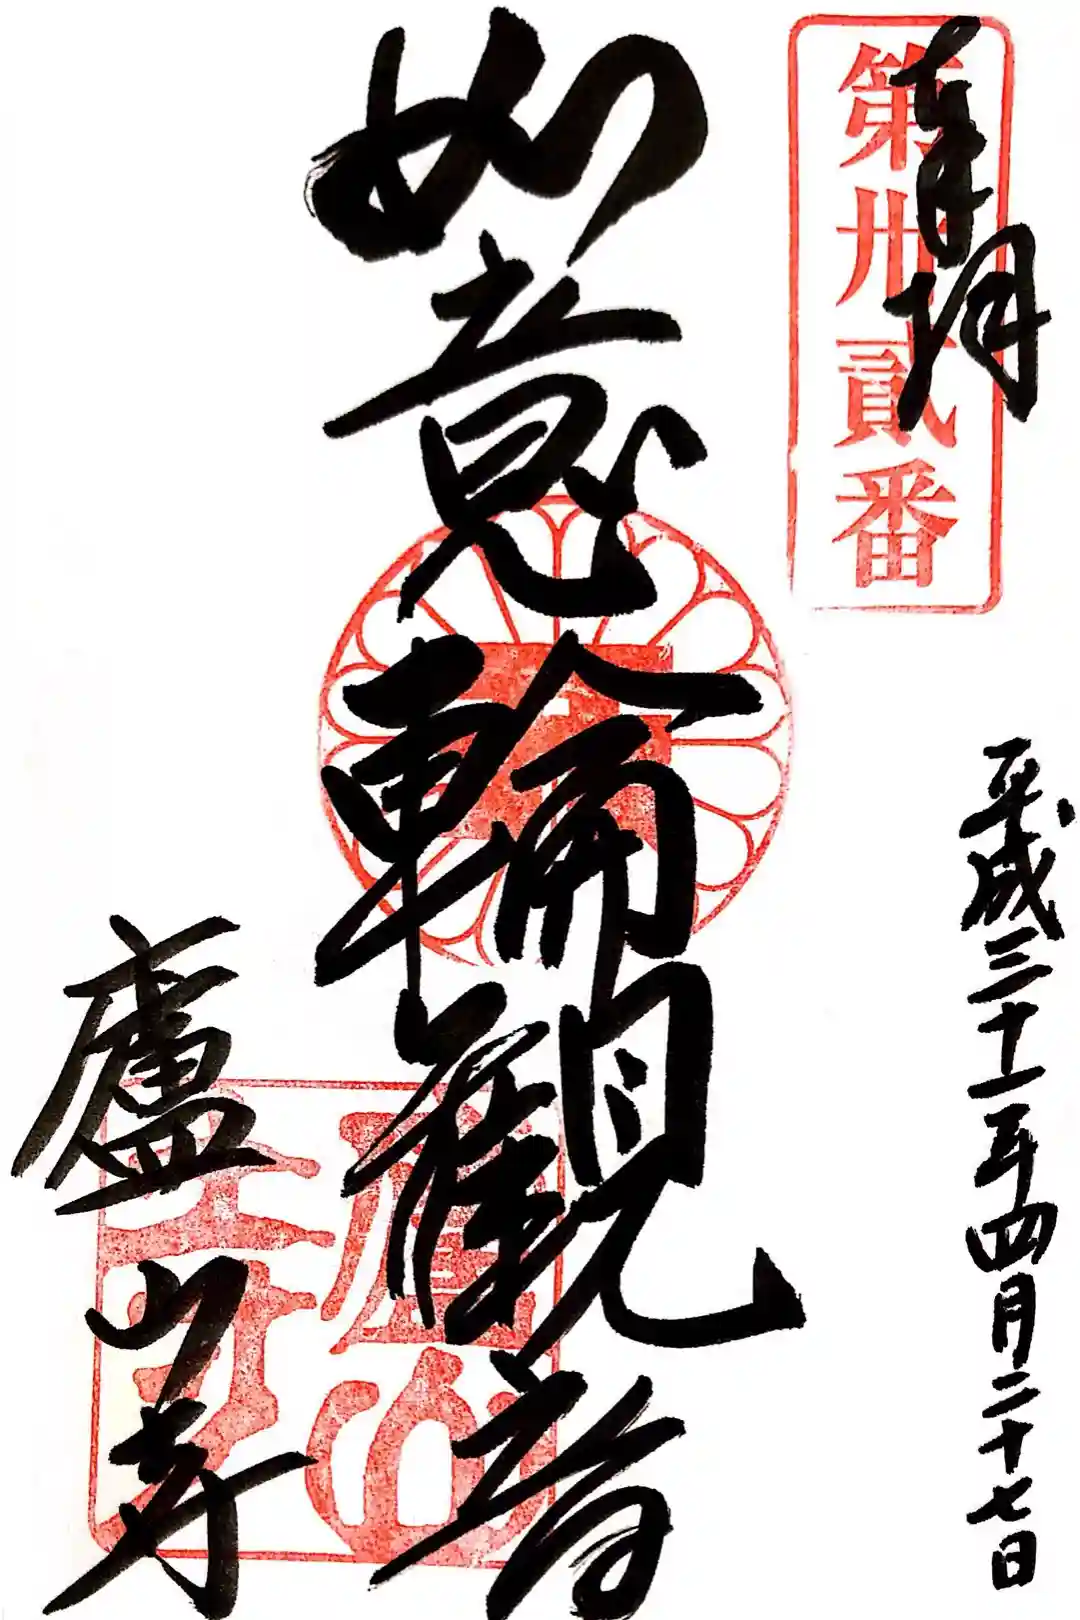 奉拝
第卅貳番
平成三十一年四月二十七日
如意輪観音
廬山寺
廬山寺印